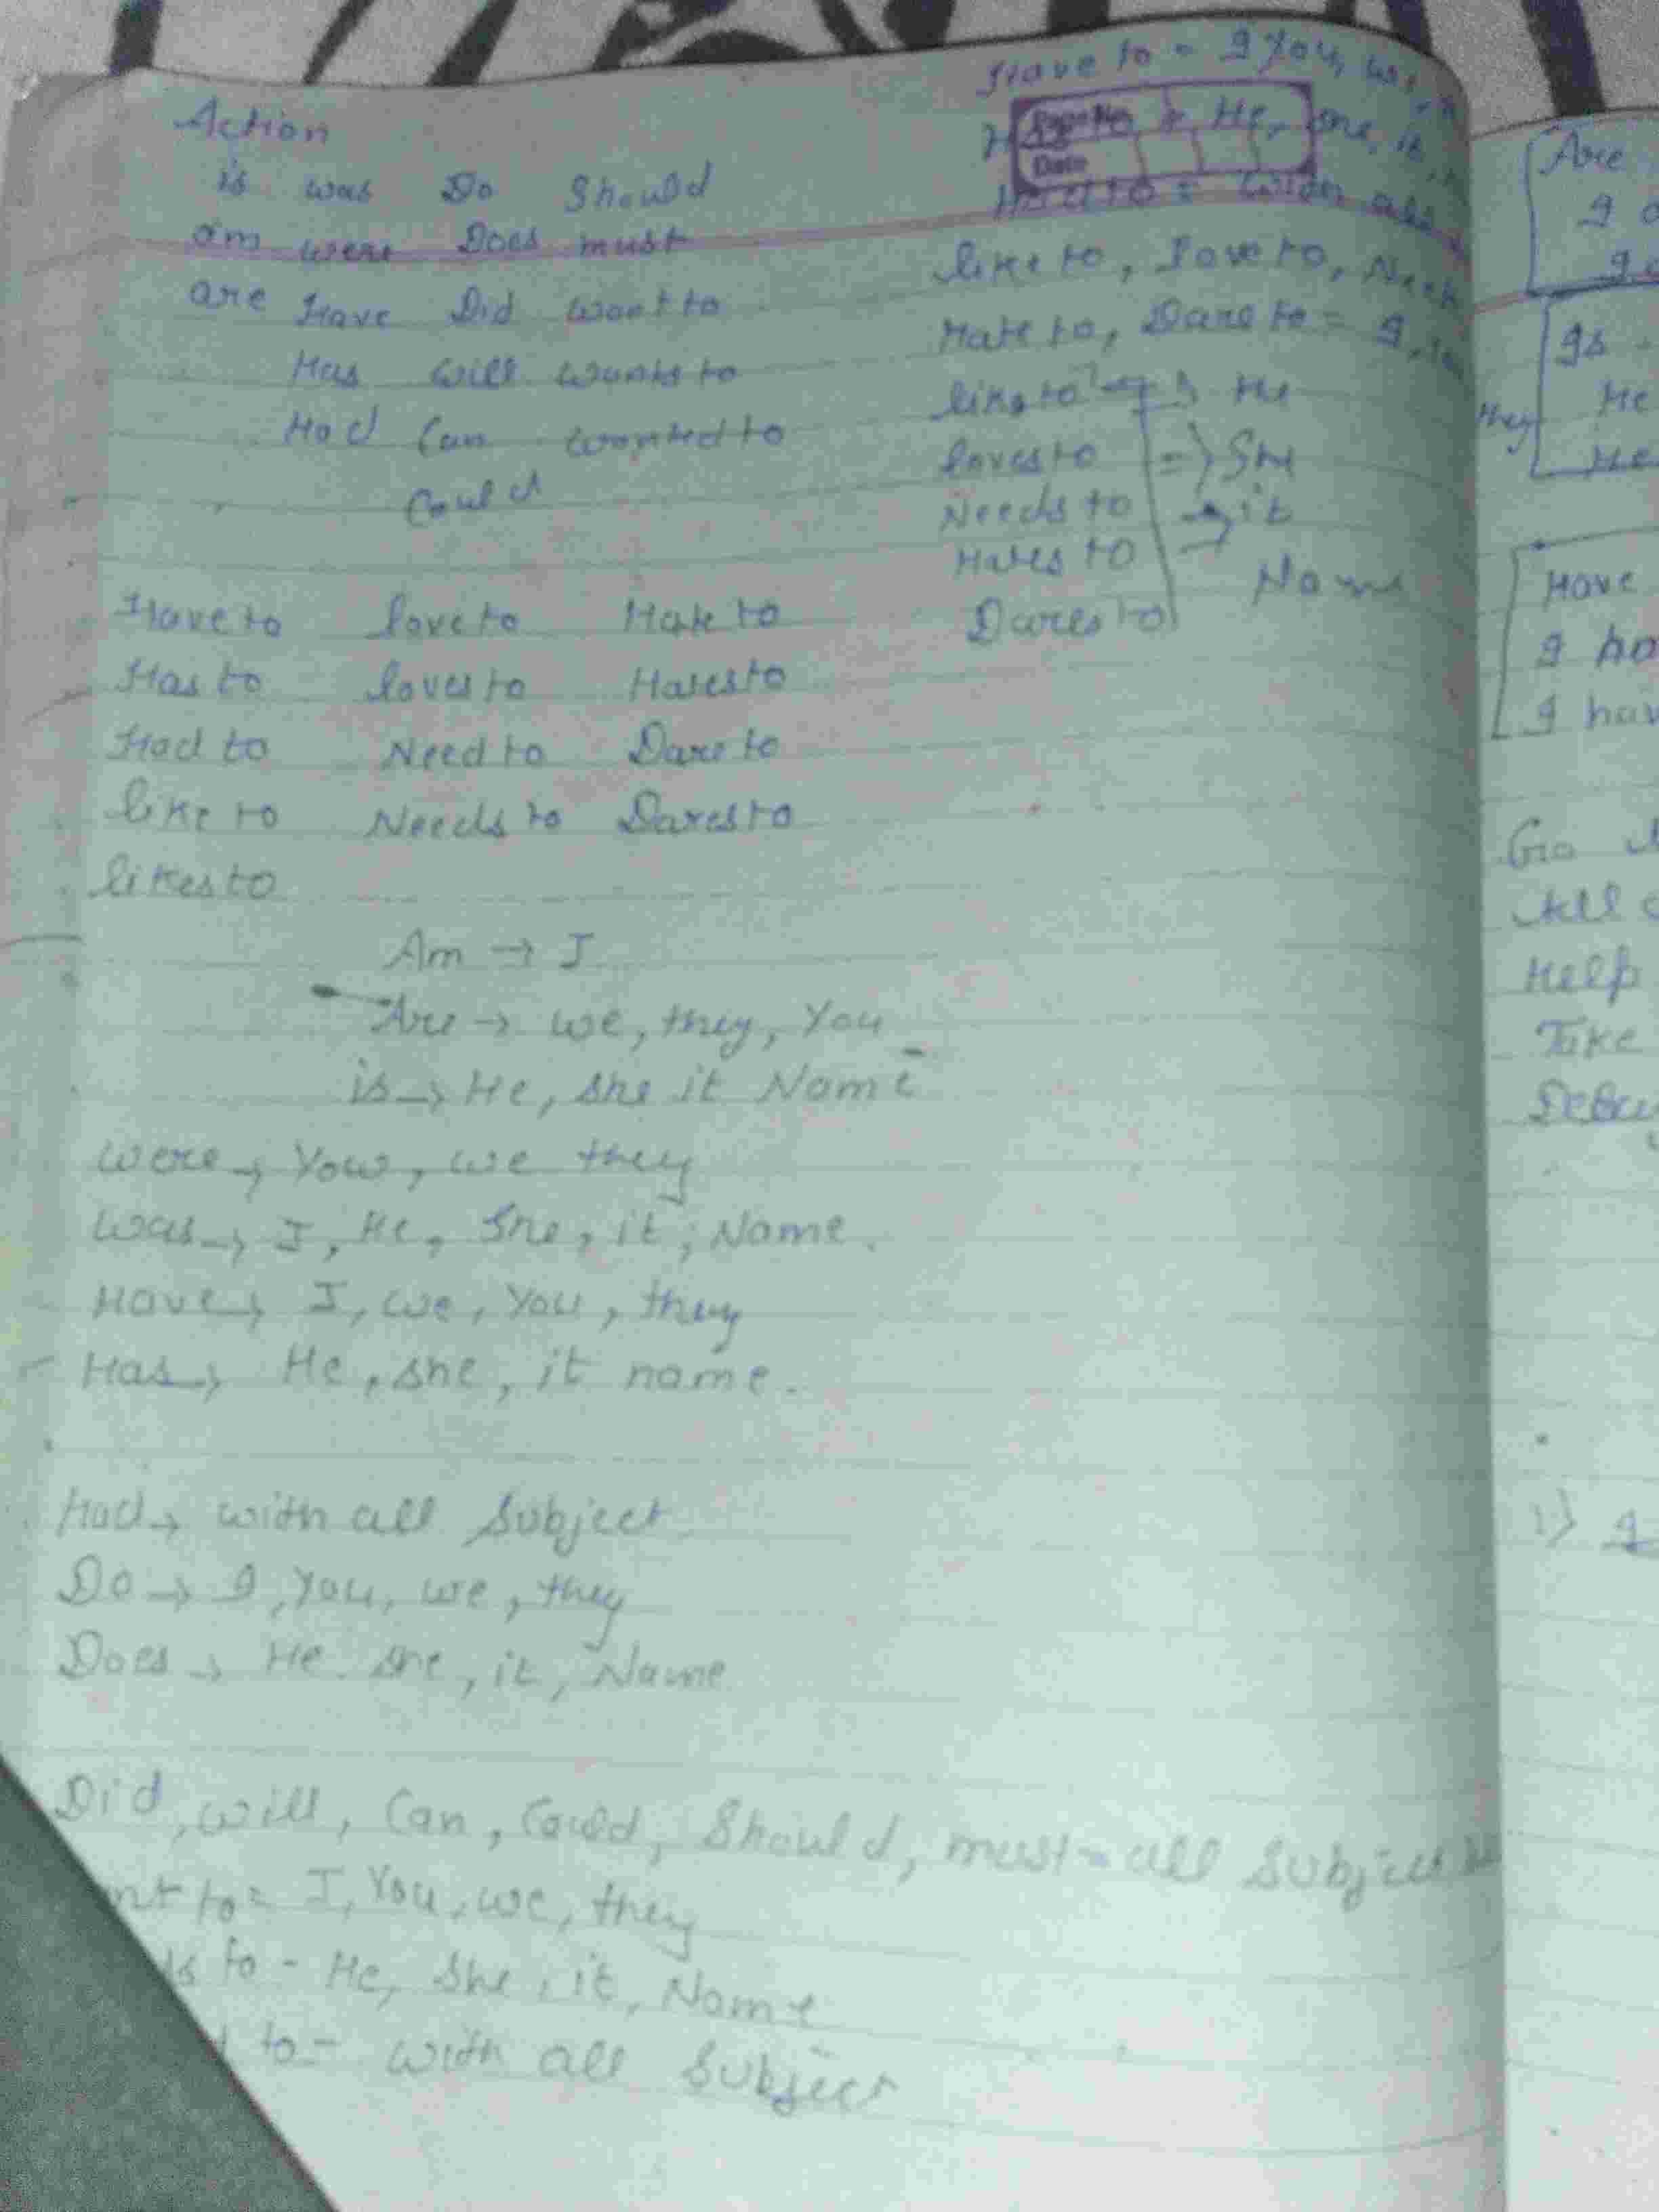 Action
is was Do Should
am were Does must
are Have Did want to
Has will wants to
Had Can wanted to
Could
Have to love to Hate to
Has to loves to Hates to
Had to Need to Dare to
like to Needs to Dares to
likes to
Am → I
Are → we, they, You
is → He, she it Name
were → You, we they
was → I, He, She, it, Name.
Have → I, we, You, they
Has → He, she, it name.
Had → with all Subject
Do → I, You, we, they
Does → He. she, it, Name
Did, will, Can, Could, Should, must = all Subject
to = I, You, we, they
to - He, She, it, Name
to - with all Subject
Have to = I You, we,
Page No.
Date
He, she, it,
Had to = with all
like to, love to, Need
Hate to, Dare to = I,
likes to → He
loves to => She
Needs to → it
Hates to
Name
Dares to
Are
I
Is
He
they
He
Have
I
I hav
Go
Help
Take
1)